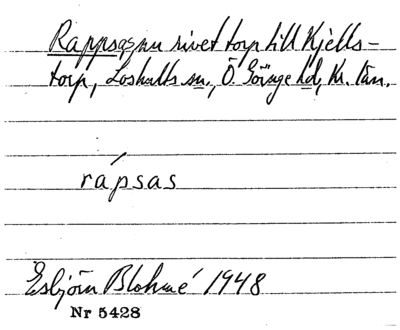 Rappsas, nu rivet torp till Kjells-
torp, Loshults sn, Ö. Göinge hd, Kr. län.
rápsas
Esbjörn Blohmé 1948
Nr 5428